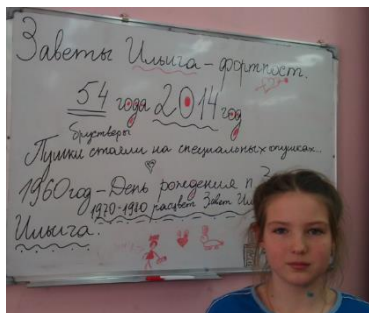 Заветы Ильича - форпост.
54 года 2014 год
Брустверы
Пушки стояли на специальных опушках...
1960 год - День рождения п. З
1970-1970 расцвет Завет И
Ильича.